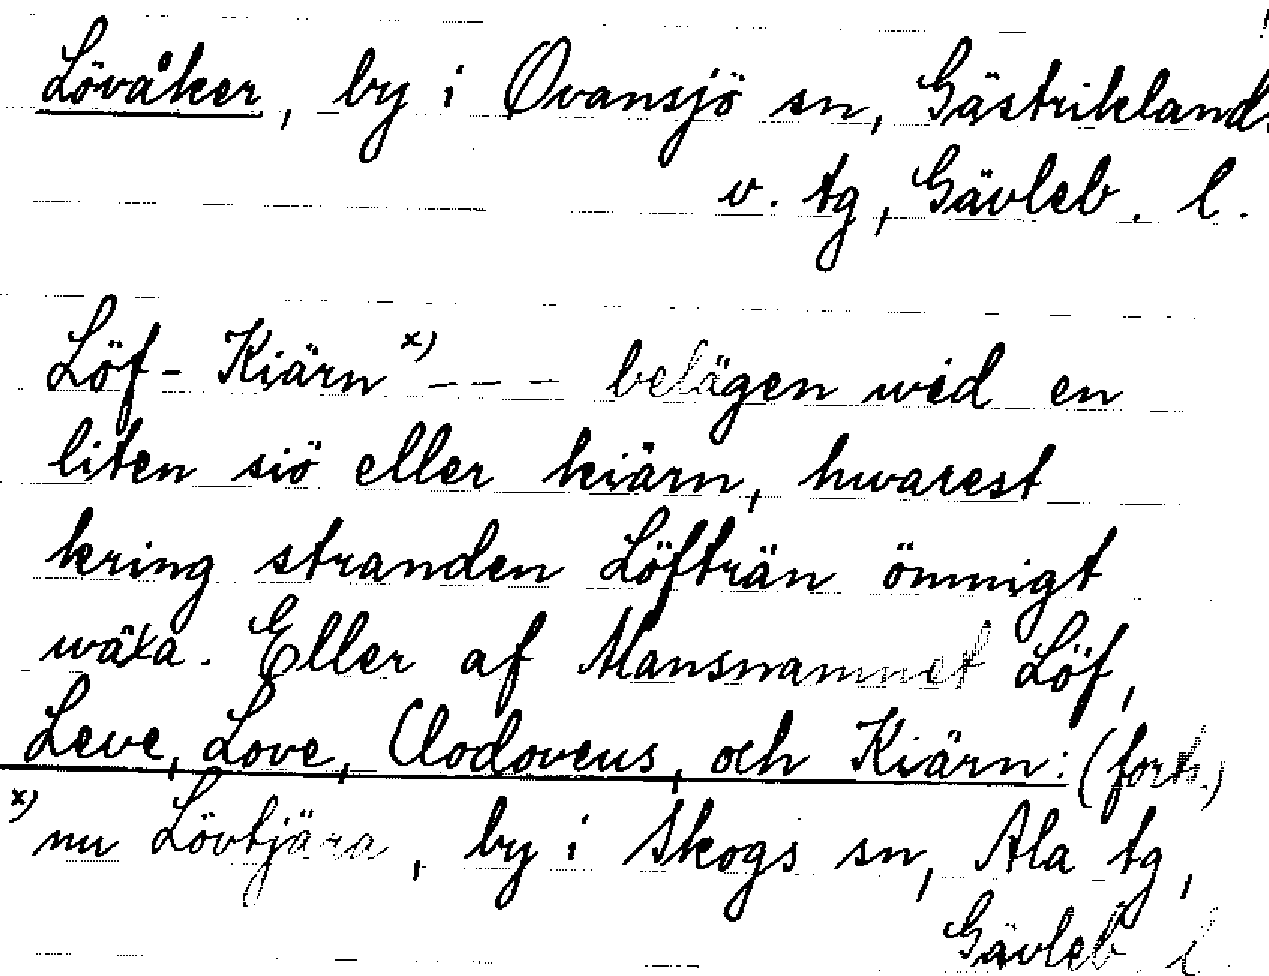 Lövåker, by i Ovansjö sn, Gästrikland
v. tg, Gävleb. l.
Löf-Kiärn x) - - - belägen wid en
liten siö eller kiärn, hwarest
kring stranden Löfträn ömnigt
wäxa. Eller af Mansnamnet Löf,
Leve, Love, Clodoveus, och Kiärn: (forts.)
x) nu Lövtjära, by i Skogs sn, Ala tg,
Gävleb l